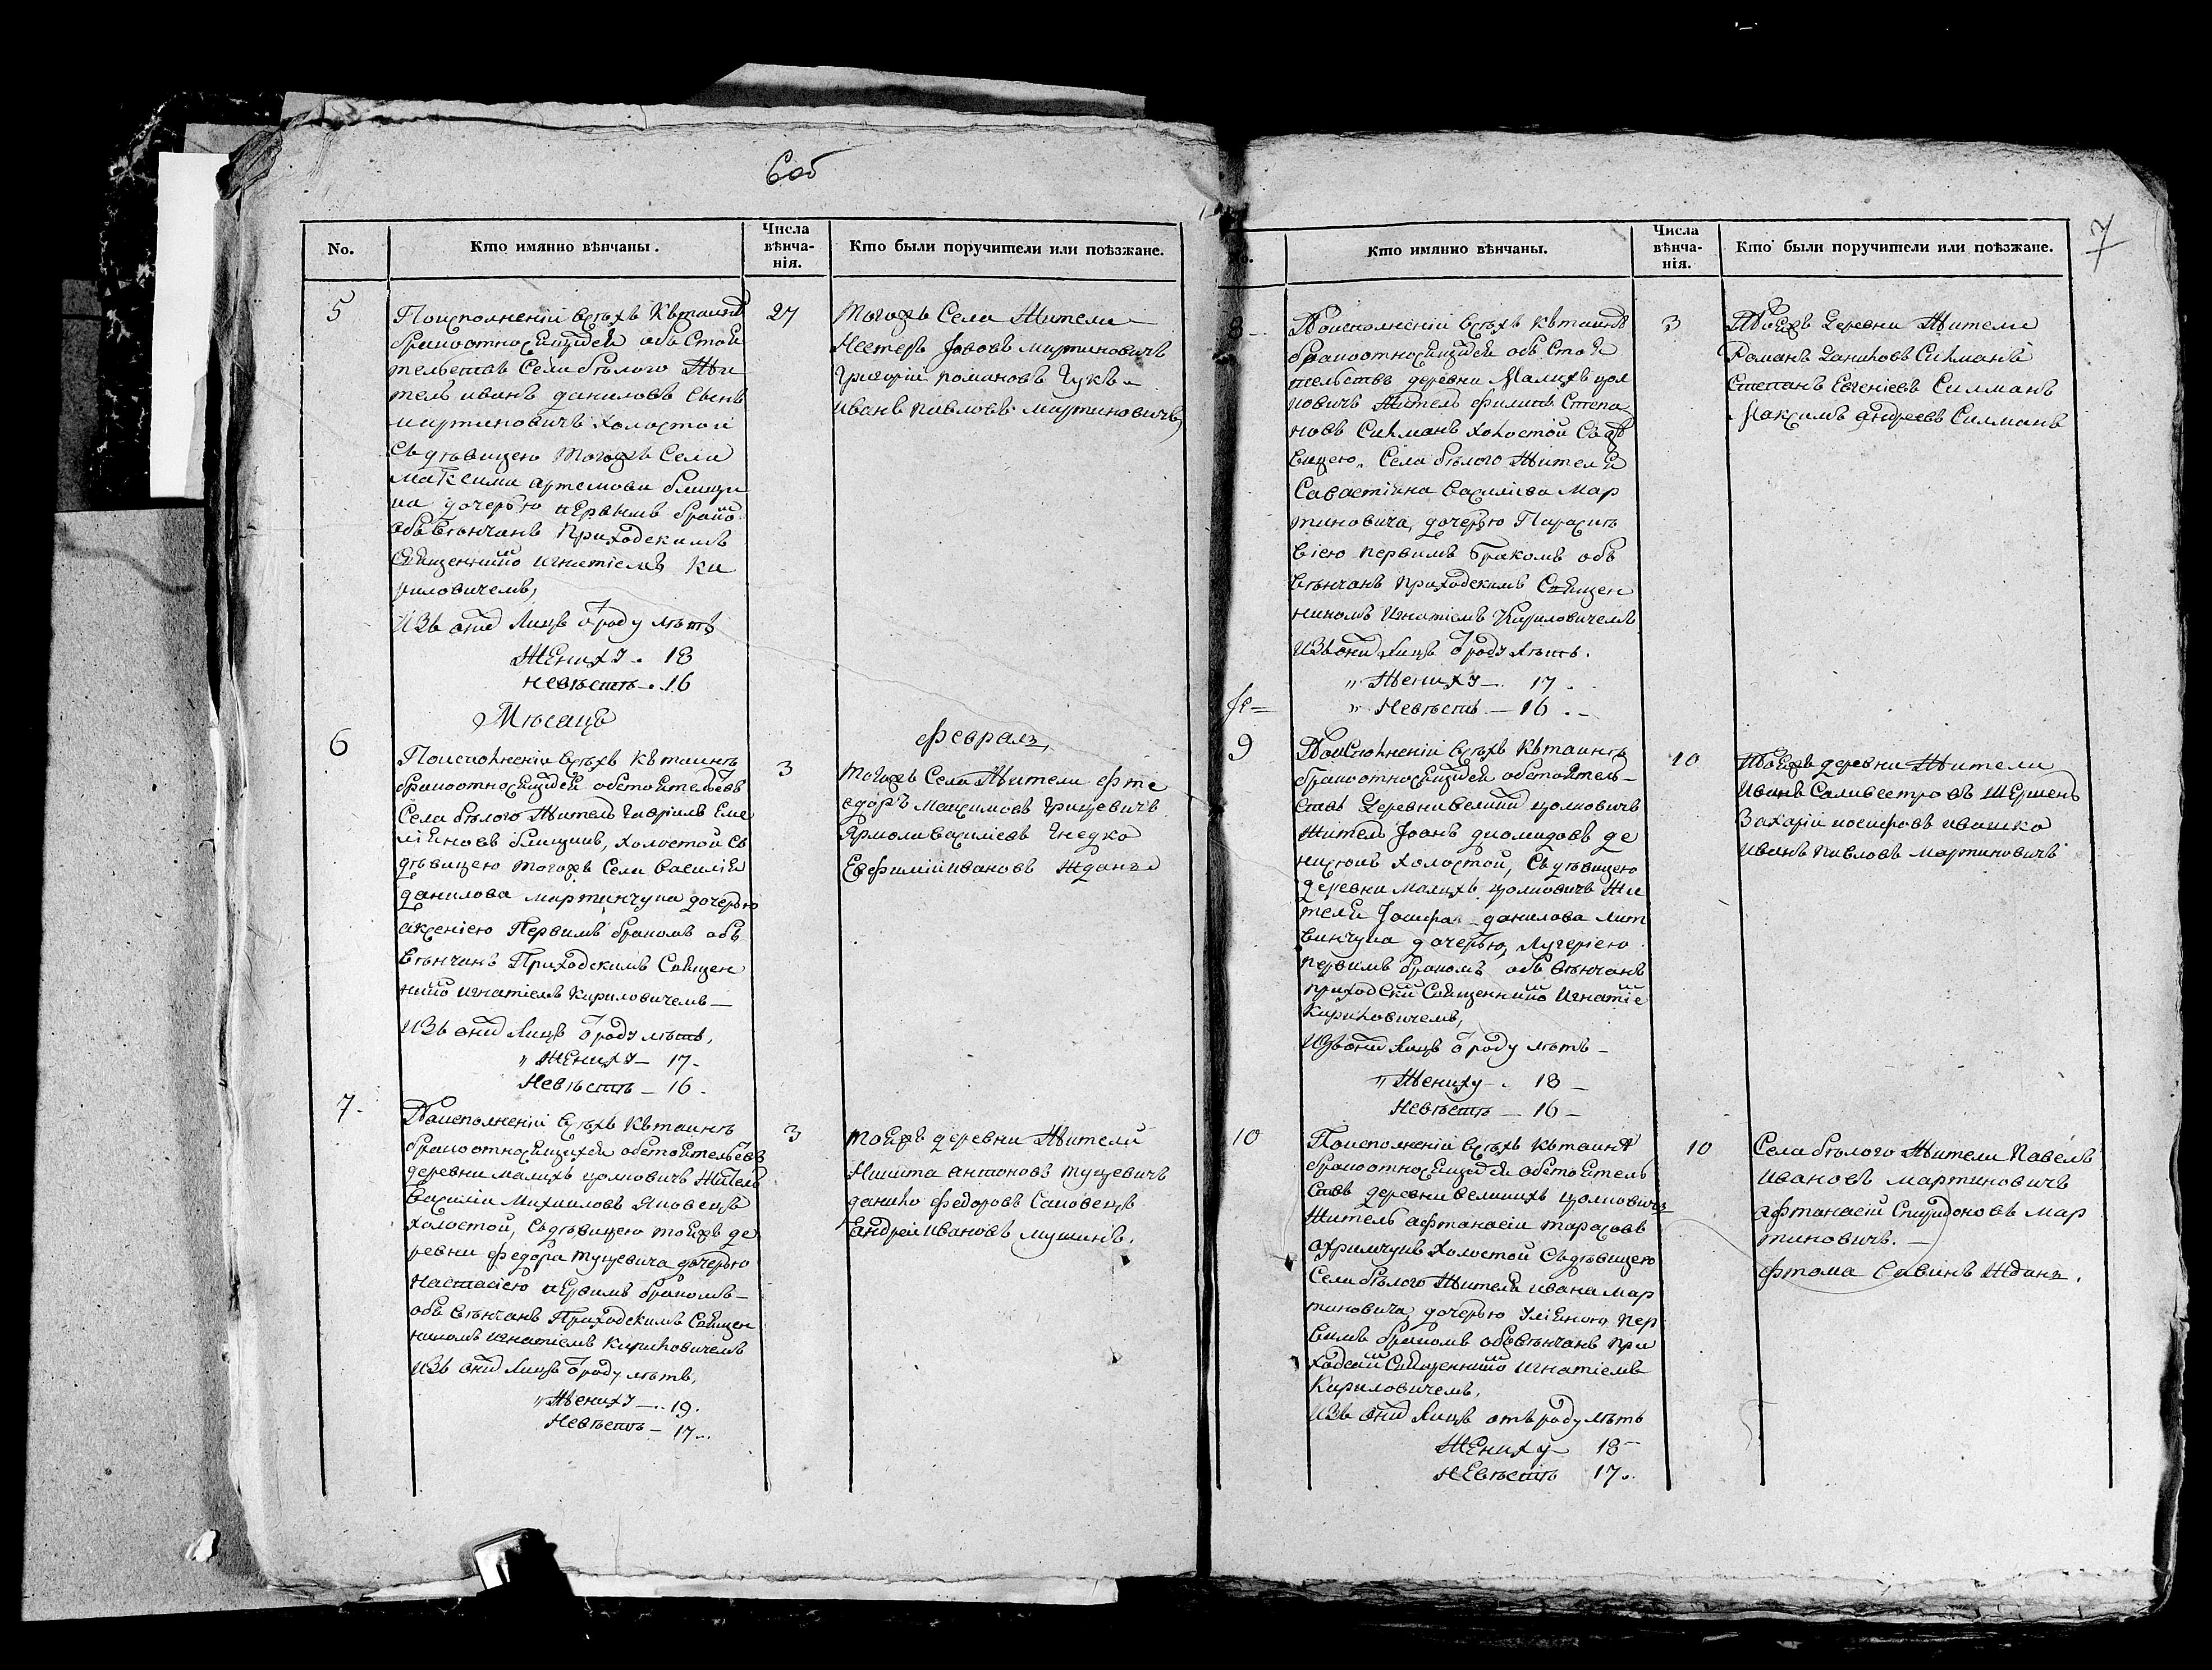 6 об
No.
Кто имянно вѣнчаны.
Числа
вѣнча-
нія.
Кто были поручители или поѣзжане.
5
Поисполненіи всѣхъ къ таинѣ
брако относящихся обстоя
тельствъ Села бѣлого Жи
тель иванъ даниловъ Сынъ
мартиновичъ холостой
Съ дѣвицею тогожъ Села
максима артемова
на дочерью первымъ брако
обвѣнчанъ Приходскимъ
Священнико игнатіемъ Ки
риловичемъ,
Изъ онихъ Лицъ ѿ роду лѣтъ
Жениху . 18
невѣстѣ . 16
27
тогожъ Села Жители
Нестеръ Іововъ мартиновичъ
Григорій романовъ Чукъ
иванъ Павловъ мартиновичъ
Мѣсяцъ
февраль
6
Поисполненіи всѣхъ къ таинѣ
брако относящихся обстоятельствъ
Села бѣлого Житель гаврилъ Еме
ліяновъ холостой Съ
дѣвицею тогожъ Села Василія
данилова мартинчука дочерью
аксеніею Первимъ бракомъ объ
вѣнчанъ Приходскимъ Священ
нико игнатіемъ Кириловичемъ —
Изъ онихъ Лицъ ѿ роду лѣтъ,
" Жениху — 17 -
Невѣстѣ — 16 -
3
тогожъ Села Жители фте
едоръ Максимовъ Грицевичъ
Ярмола Василіевъ Гнедко
Евфимій ивановъ Жданъ
7.
Поисполненіи всѣхъ къ таинѣ
брако относящихся обстоятельствъ
деревни малихъ цолковичъ Житель
Василій Михаиловъ Яковецъ
холостой, Съ дѣвицею тоежъ де
ревни федора туцевича дочерью
настасіею первимъ бракомъ —
обвѣнчанъ Приходскимъ Священ
никомъ игнатіемъ Кириловичемъ
Изъ онихъ Лицъ ѿ роду лѣтъ,
" Жениху — 19.
Невѣстѣ — 17
3
тоежъ деревни Жители
Никита антоновъ туцевичъ
данило федоровъ Саковецъ
андрей ивановъ мушинъ.
7
Кто имянно вѣнчаны.
Числа
вѣнча-
нія.
Кто были поручители или поѣзжане.
8
Поисполненіи всѣхъ къ таинѣ
брако относящихся обстоя
тельствъ деревни Малихъ цол
ковичъ Житель филипъ Степа
новъ Силманъ холостой Съ дѣ
вицею Села бѣлого Жителя
Савастіяна Василіева Мар
тиновича, дочерью Параске
віею первимъ бракомъ объ
вѣнчанъ приходскимъ Священ
никомъ Игнатіемъ Кириловичемъ
Изъ онихъ Лицъ ѿ роду лѣтъ.
" Жениху — 17 .
" Невѣстѣ — 16 . —
3
Тоежъ деревни Жители
Романъ даниловъ Силманъ
Степанъ Евгеніевъ Силманъ
Максимъ андреевъ Силманъ
9
Поисполненіи всѣхъ къ таинѣ
брако относящихся обстоятель-
ствъ деревни великихъ цолковичъ
Житель Іоанъ диомидовъ де
холостой, Съ дѣвицею
деревни малихъ цолковичъ Жи
теля Іосифа данилова лит
винчука дочерью, Лукеріею
первимъ бракомъ обвѣнчанъ
приходскимъ Священнико Игнатіе
Кириловичемъ,
Изъ онихъ Лицъ ѿ роду лѣтъ —
" Жениху — 18 —
Невѣстѣ — 16 —
10
Тоежъ деревни Жители
Иванъ Саливестровъ Шершень
Захарій иосифовъ ивашко
иванъ Павловъ Мартиновичъ
10
Поисполненіи всѣхъ къ таинѣ
брако относящихся обстоятель
ствъ деревни великихъ цолковичъ
Житель афтанасіи тарасовъ
ахримчукъ холостой Съ дѣвицею
Села бѣлого Жителя ивана мар
тиновича дочерью Уліяною пер
вимъ бракомъ обвѣнчанъ при
ходскимъ Священнико игнатіемъ
Кириловичемъ.
Изъ онихъ Лицъ отъ роду лѣтъ
Жениху 18 —
Невѣстѣ 17.
10
Села бѣлого Жители Павелъ
ивановъ мартиновичъ
афтанасій Спиридоновъ мар
тиновичъ. —
фтома Савинъ Жданъ.